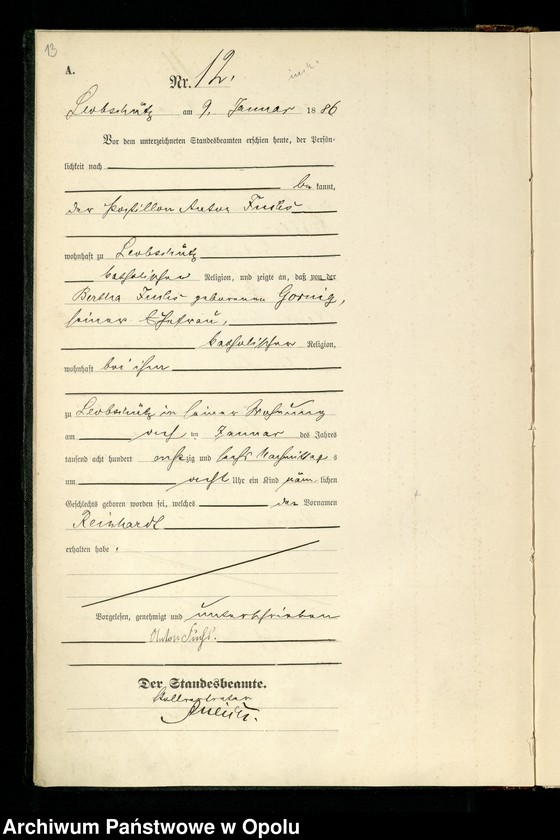 13
A.
Nr. 12.
Leobschütz am 9. Januar 1886
Vor dem unterzeichneten Standesbeamten erschien heute, der Persön-
lichkeit nach
bekannt,
der Postillon Anton Fuchs
wohnhaft zu Leobschütz
katholischer Religion, und zeigte an, daß von der
Bertha Fuchs geborenen Gornig,
seiner Ehefrau,
katholischer Religion,
wohnhaft bei ihm
zu Leobschütz in seiner Wohnung
am acht ten Januar des Jahres
tausend acht hundert achtzig und sechs Nachmittags
um acht Uhr ein Kind männlichen
Geschlechts geboren worden sei, welches den Vornamen
Reinhardt
erhalten habe.
Vorgelesen, genehmigt und unterschrieben
Anton Fuchs.
Der Standesbeamte.
Archiwum Państwowe w Opolu